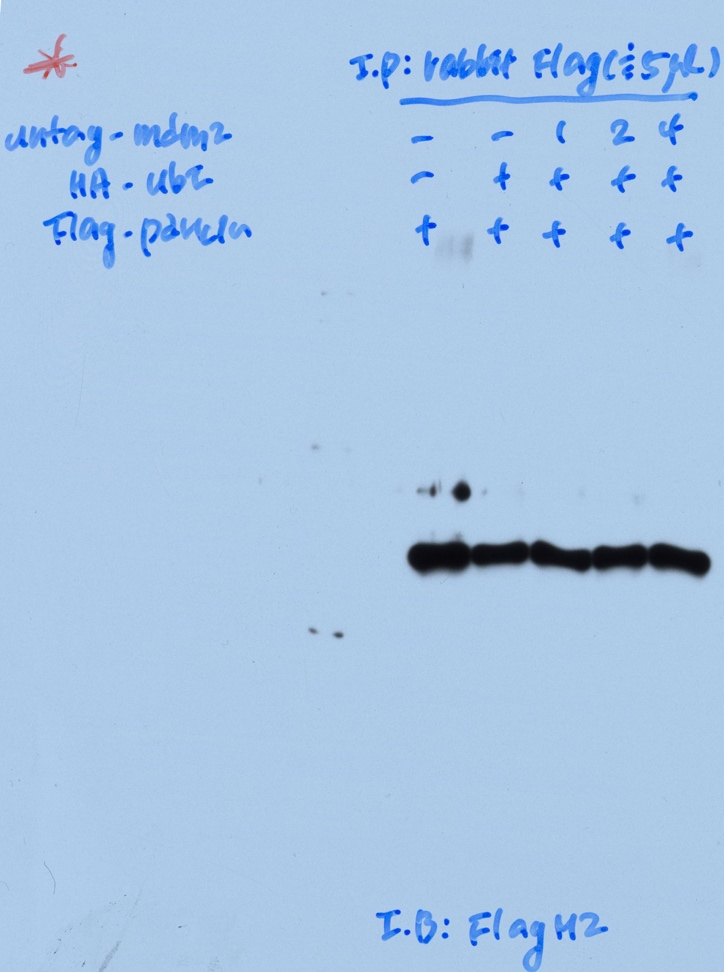 I.P: rabbit Flag (각 5μl)
untag-mdm2 - - 1 2 4
HA-Ub - + + + +
Flag- + + + + +
I.B: Flag M2